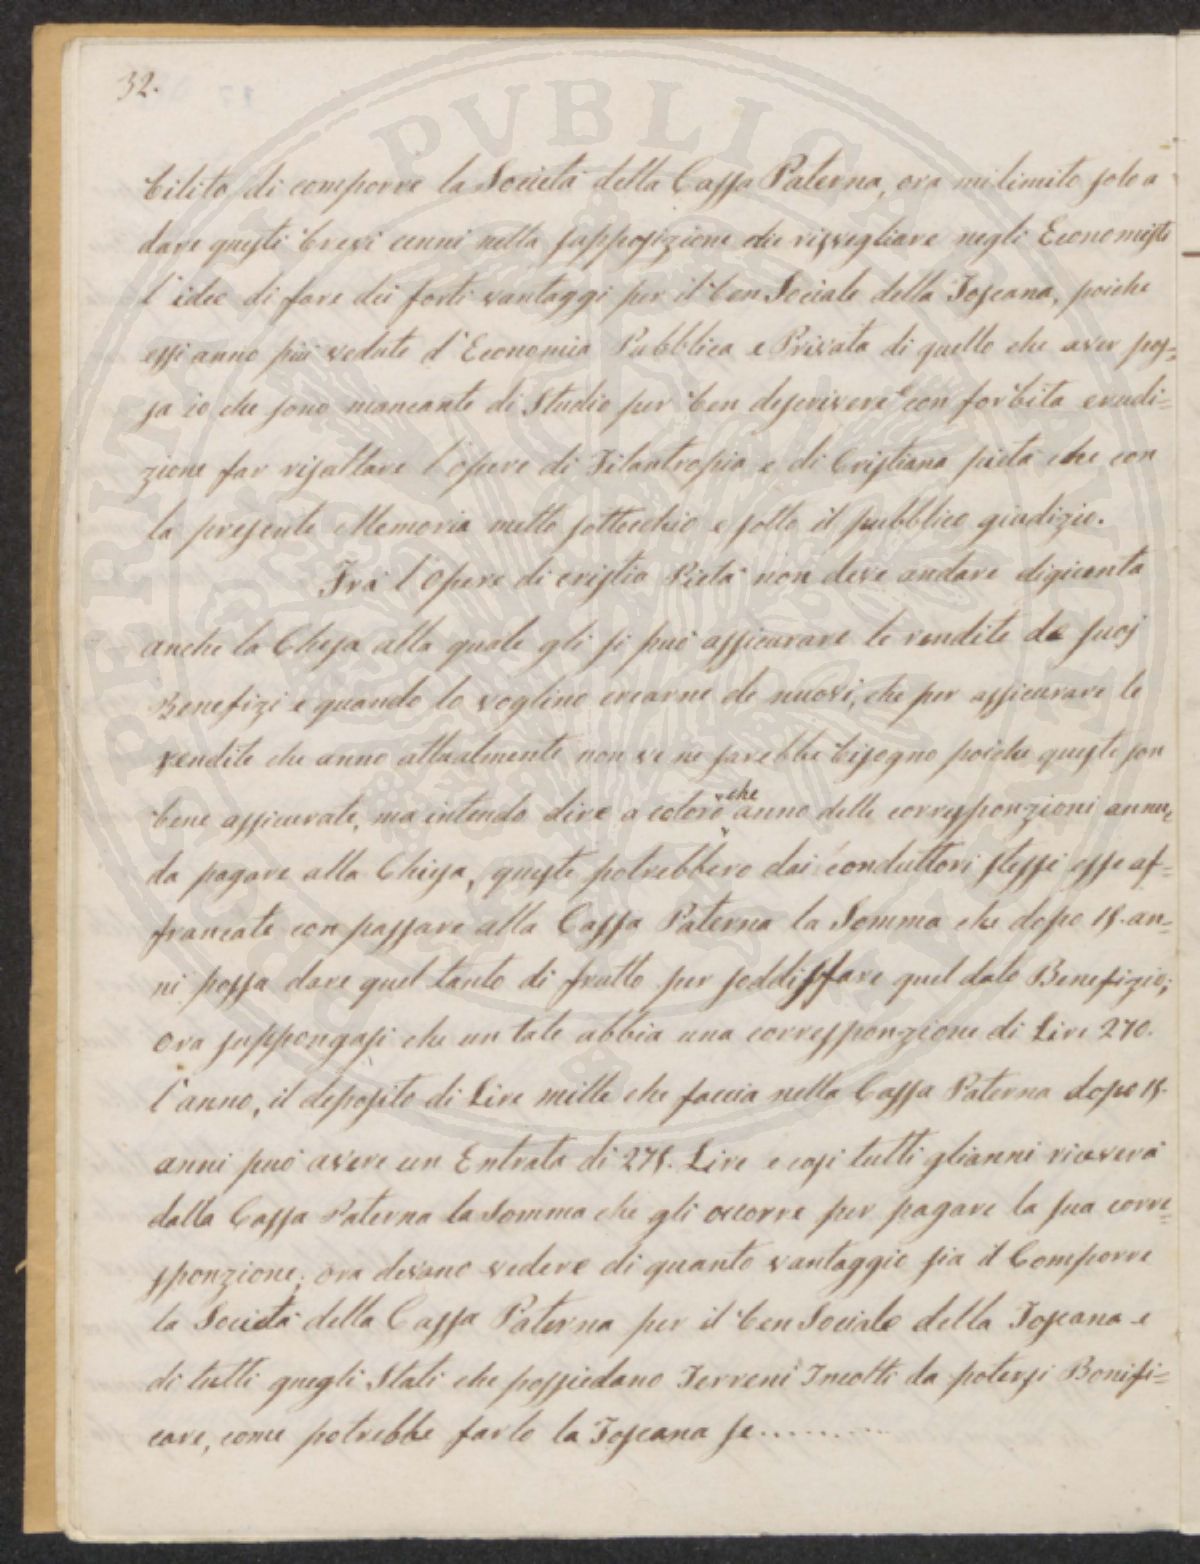 32.
bilito di comporre la Società della Cassa Paterna, ora mi limito solo a
dare questi brevi cenni nella supposizione die risvegliare negli Economisti
l'idee di fare dei forti vantaggi per il ben Sociale della Toscana, poiche
essi anno più vedute d'Economia Pubblica e Privata di quello che aver pos=
sa io che sono mancante di Studio per ben descrivere e con forbita erudi=
zione far risaltare l'opere di Filantropia e di Cristiana pietà che con
la presente Memoria metto sottocchio e sotto il pubblico giudizio.
Frà l'Opere di cristia Pietà non deve andare digiunta
anche la Chiesa alla quale gli si può assicurare le rendite de suoj
Benefizi e quando lo voglino crearne de nuovi, che per assicurare le
rendite che anno attualmente non ve ne sarebbe bisogno poiche queste son
bene assicurate, ma intendo dire a coloro che anno delle corrisponzioni annue,
da pagare alla Chiesa, queste potrebbero dai conduttori stessi esse af=
francate con passare alla Cassa Paterna la Somma che dopo 15. an=
ni possa dare quel tanto di frutto per soddisffare quel dato Benefizio;
Ora suppongasi che un tale abbia una corresponzione di Lire 270.
l'anno, il deposito di Lire mille che faccia nella Cassa Paterna dopo 15.
anni può avere un Entrata di 275. Lire e così tutti glianni riceverà
dalla Cassa Paterna la Somma che gli occorre per pagare la sua corre=
sponzione; ora devano vedere di quanto vantaggio sia il Comporre
la Società della Cassa Paterna per il ben Sociale della Toscana e
di tutti quegli Stati che possiedano Terreni Incolti da potersi Bonifi=
care, come potrebbe farlo la Toscana se.........
PVBLICA